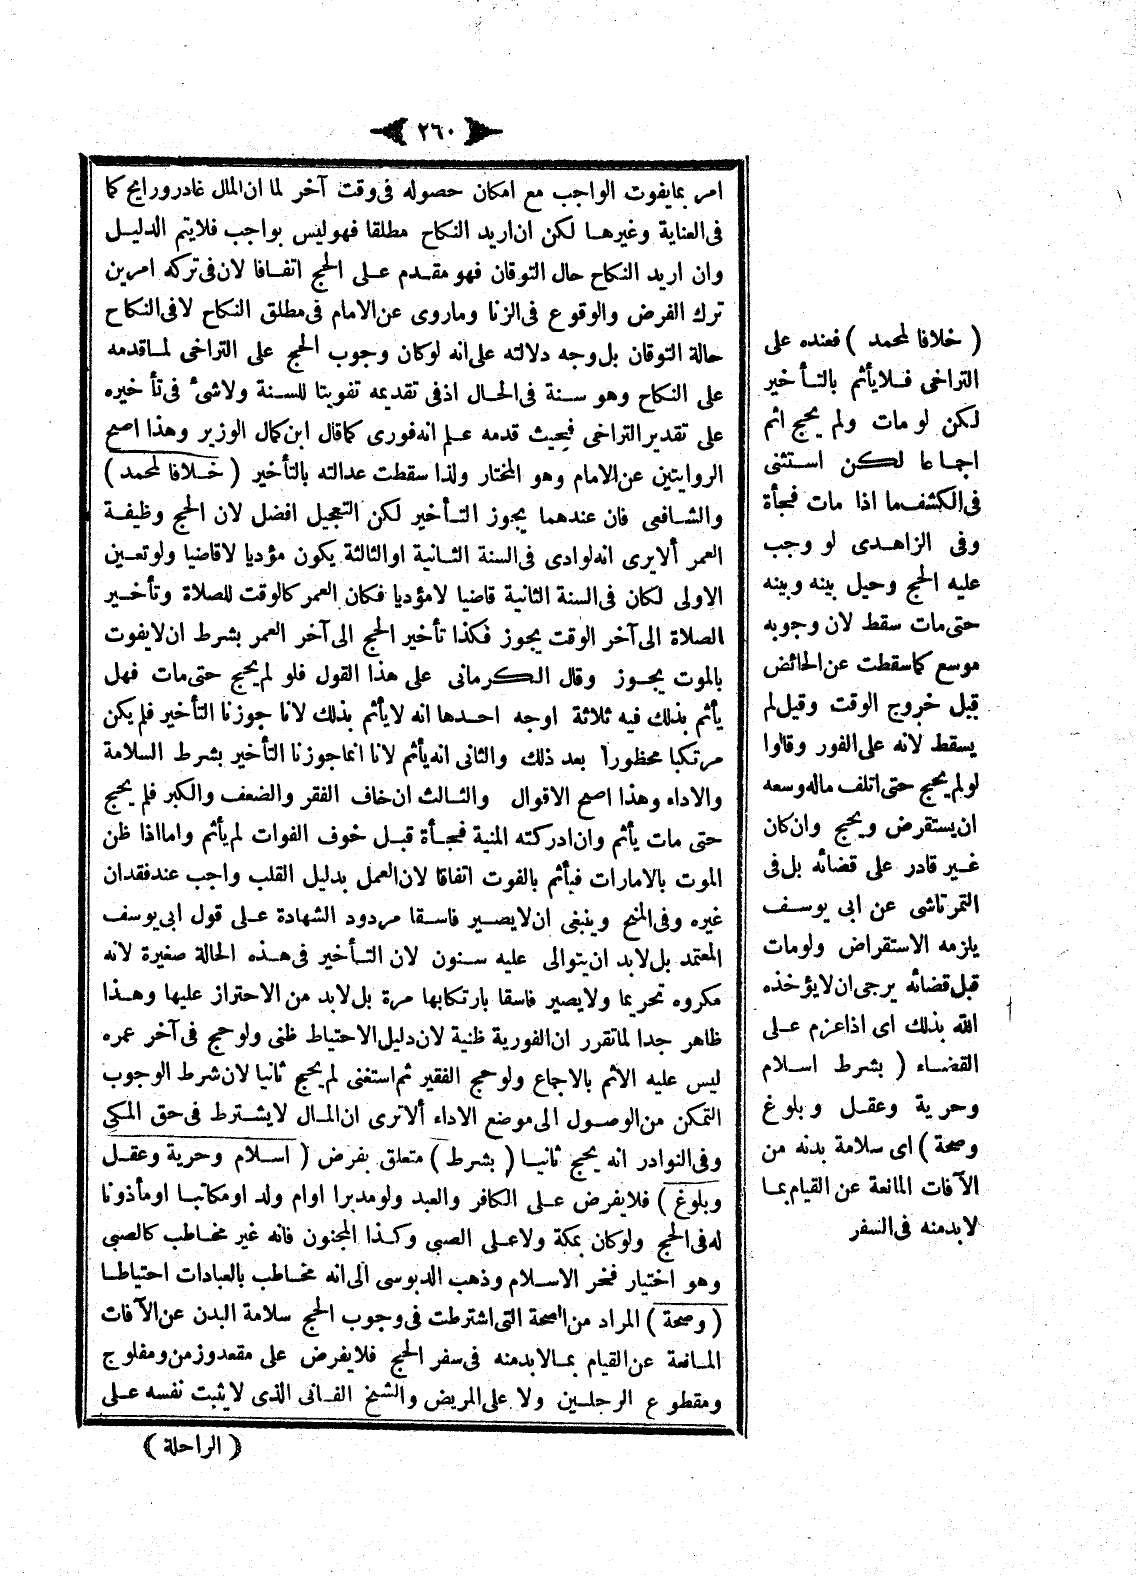 ٢٦٠
امر بمايفوت الواجب مع امكان حصوله فى وقت آخر لما ان المال غاد ورايح كما
فى العناية وغيرهـا لكن ان اريد النكاح مطلقا فهو ليس بواجب فلايتم الدليـل
وان اريد النكاح حال التوقان فهو مقـدم علـى الحج اتفـاقا لان فى تركه امرين
ترك الفرض والوقوع فى الزنا وماروى عن الامام فى مطلق النكاح لافى النكاح
حالة التوقان بل وجه دلالته على انه لوكان وجوب الحج على التراخى لمـاقدمه
على النكاح وهو سـنة فى الحـال اذ فى تقديمه تفويتا للسـنة ولاشئ فى تأخيره
على تقدير التراخى فحيث قدمه علـم انه فورى كما قال ابن كمال الوزير وهذا اصح
الروايتين عن الامام وهو المختار ولذا سقطت عدالته بالتأخير ( خـلافا لمحمد )
والشـافعى فان عندهما يجوز التـأخير لكن التعجيل افضل لان الحج وظيفـة
العمر ألايرى انه لوادى فى السنة الثـانية اوالثالثة يكون مؤديا لاقاضيا ولوتعـين
الاولى لكان فى السنة الثانية قاضيا لامؤديا فكان العمر كالوقت للصلاة وتأخـير
الصلاة الى آخر الوقت يجوز فكذا تأخير الحج الى آخر العمر بشرط ان لايفوت
بالموت يجـوز وقال الـكرمانى على هذا القول فلو لم يحج حتى مات فهل
يأثم بذلك فيه ثلاثة اوجه احـدها انه لايأثم بذلك لانا جوزنا التأخير فلم يكن
مرتكبا محظورا بعد ذلك والثانى انه يأثم لانا انما جوزنا التأخير بشرط السلامة
والاداء وهذا اصح الاقوال والثـالث ان خاف الفقر والضعف والكبر فلم يحج
حتى مات يأثم وان ادركته المنية فجـأة قبـل خوف الفوات لم يأثم واما اذا ظن
الموت بالامارات فيأثم بالفوت اتفاقا لان العمل بدليل القلب واجب عند فقدان
غيره وفى المنح وينبغى ان لايصـير فاسقا مردود الشهادة علـى قول ابى يوسف
المعتمد بل لابد ان يتوالى عليه سـنون لان التـأخير فى هـذه الحالة صغيرة لانه
مكروه تحريما ولايصير فاسقا بارتكابها مرة بل لابد من الاحتراز عليها وهـذا
ظاهر جدا لما تقرر ان الفورية ظنية لان دليل الاحتياط ظنى ولو حج فى آخر عمره
ليس عليه الاثم بالاجماع ولو حج الفقير ثم استغنى لم يحج ثانيا لان شرط الوجوب
التمكن من الوصـول الى موضع الاداء ألاترى ان المـال لايشـترط فى حق المكى
وفى النوادر انه يحج ثانيـا ( بشرط ) متعلق بفرض ( اسـلام وحرية وعقـل
وبلوغ ) فلايفرض علـى الكافر والعبد ولومدبرا اوام ولد اومكاتبـا اومأذونا
له فى الحج ولوكان بمكة ولاعلى الصبى وكـذا المجنون فانه غير مخاطب كالصبى
وهو اختيار فخر الاسـلام وذهب الدبوسى الى انه مخـاطب بالعبادات احتياطـا
( وصحة ) المراد من الصحة التى اشترطت فى وجوب الحج سلامة البدن عن الآفات
المـانعة عن القيام بمـالابدمنه فى سفر الحج فلايفرض على مقعد وزمن ومفلوج
ومقطوع الرجلـين ولا على المريض والشيخ الفـانى الذى لايثبت نفسه علـى
( الراحلة )
( خلافا لمحمد ) فعنده على
التراخى فـلايأثم بالتـأخير
لكن لو مات ولم يحج اثم
اجمـاعا لـكن استثنى
فى الكشف ما اذا مات فجأة
وفى الزاهـدى لو وجب
عليه الحج وحيل بينه وبينه
حتى مات سقط لان وجوبه
موسع كما سقطت عن الحائض
قبل خروج الوقت وقيل لم
يسقط لانه على الفور وقالوا
لو لم يحج حتى اتلف ماله وسعه
ان يستقرض ويحج وان كان
غـير قادر على قضائه بل فى
التمرتاشى عن ابى يوسـف
يلزمه الاستقراض ولومات
قبل قضائه يرجى ان لايؤخذه
الله بذلك اى اذا عزم علـى
القضـاء ( بشرط اسـلام
وحرية وعقـل وبلوغ
وصحة ) اى سلامة بدنه من
الآفات المانعة عن القيام بمـا
لابدمنه فى السفر